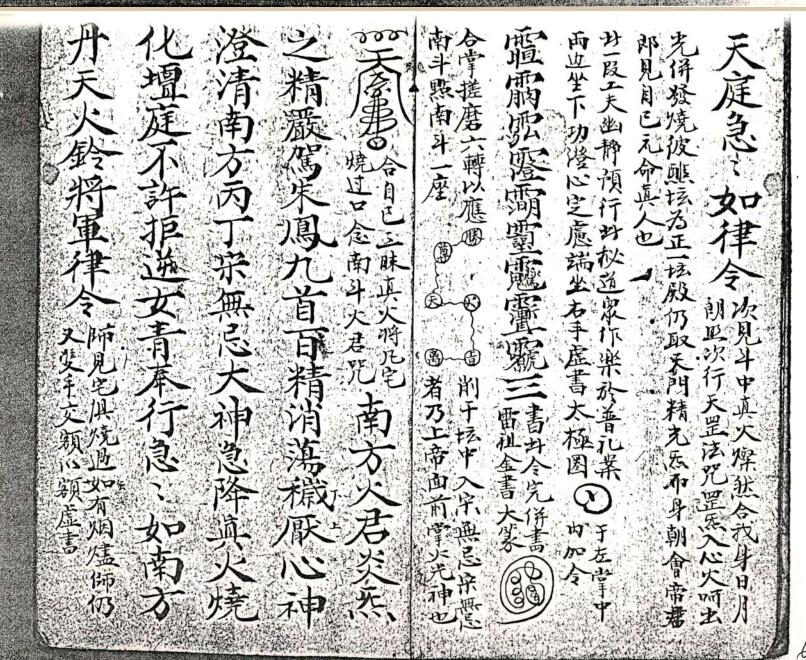 天庭急〻如律令 次見斗中真火燦然合我身日月
朗照次行天罡法咒罡炁入心火呵出
光併發燒彼醮坛為正一坛殿仍取天門精光炁布身朝會帝君
即見自己元命真人也
此一段工夫幽静預行此秘道眾作樂於普礼業
兩边坐下功澄心定慮端坐右手虚書太極圖 于左掌中
内加令
三 書此令完併書
雷祖金書大篆
合掌搓磨六轉以應
南斗點南斗一座
削于坛中入宋無忌宋無忌
者乃上帝面前掌火光神也
合自己三昧真火将凡宅
燒过口念南斗火君咒 南方火君炎炁
之精嚴駕朱鳳九首百精消蕩穢厭心神
澄清南方丙丁宋無忌大神急降真火燒
化壇庭不許拒逆女青奉行急〻如南方
丹天火鈴將軍律令 師見宅俱燒過如有烟燼師仍
又雙手交額以額虚書